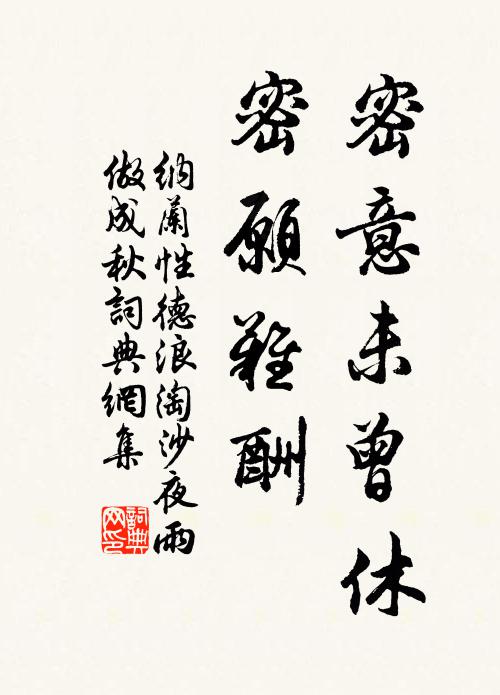 密意未曾休
密願難酬
納蘭性德浪淘沙夜雨
做成秋詞典網集
詞典网印